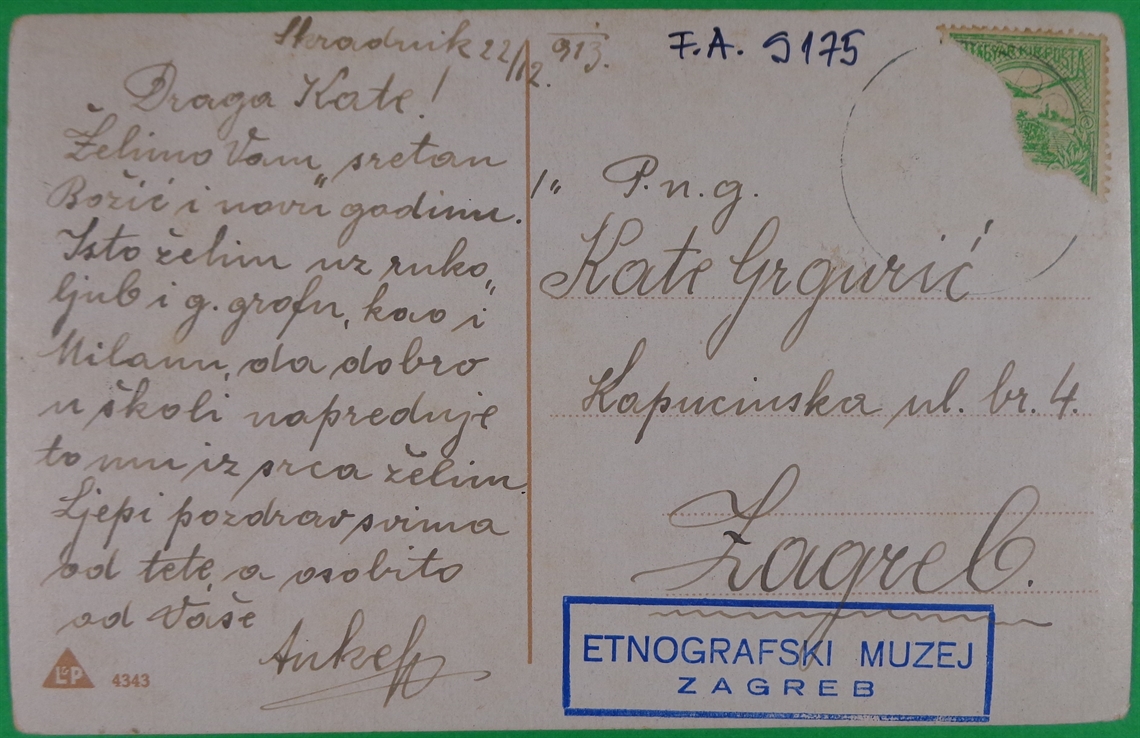 Skradnik 22/12. 913.
Draga Kate!
Želimo Vam „sretan
Božić i novu" godinu.
Isto želim uz ruko„
ljub i g. grofu, kao i
Milanu, da dobro
u školi napreduje
to mu iz srca želim.
Ljepi pozdrav svima
od tete, a osobito
od Vaše
Anke
L&P 4343
F.A. 9175
P.n.g.
Kate Grgurić
Kapucinska ul. br. 4.
Zagreb.
ETNOGRAFSKI MUZEJ
ZAGREB